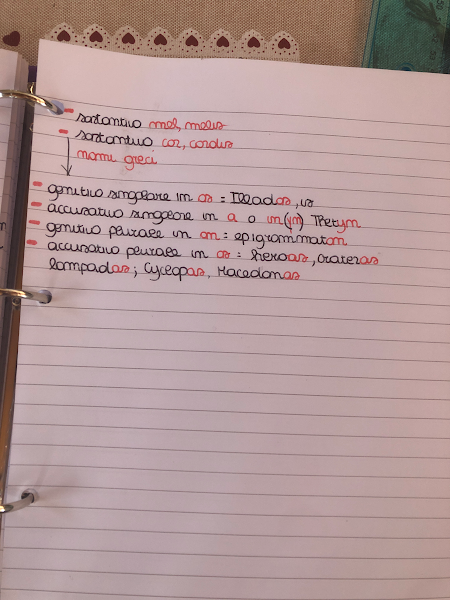 - sostantivo mel, mellis
- sostantivo cor, cordis
nomi greci
- genitivo singolare in os = Iliados, is
- accusativo singolare in a o in (ym) Thetym
- genitivo plurale in on = epigrammaton
- accusativo plurale in as = heroas, crateras
lampadas; Cyclopas, Macedonas